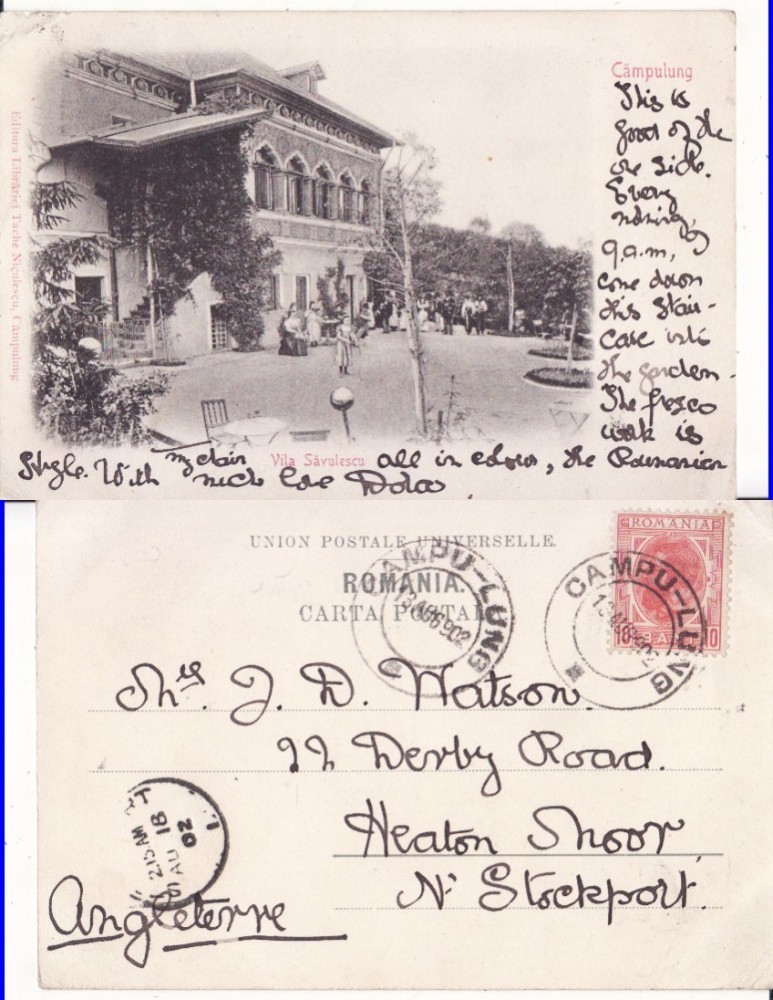 Câmpulung
This is
good of the
one side.
Every
morning,
9 a.m,
come down
this stair-
case into
the garden.
The fresco
work is
all in colour, the Roumanian
style. With
much love Dola
Vila Săvulescu
Editura Librăriei Tache Niculescu, Câmpulung
UNION POSTALE UNIVERSELLE.
ROMANIA.
CARTA POSTALA
CAMPU-LUNG
13 AUG 902
ROMANIA
10 BANI 10
CAMPU-LUNG
13 AUG 902
Mrs. J. D. Watson.
22 Derby Road.
Heaton Moor,
Nr Stockport.
Angleterre
2.15 AM
AU 18
02